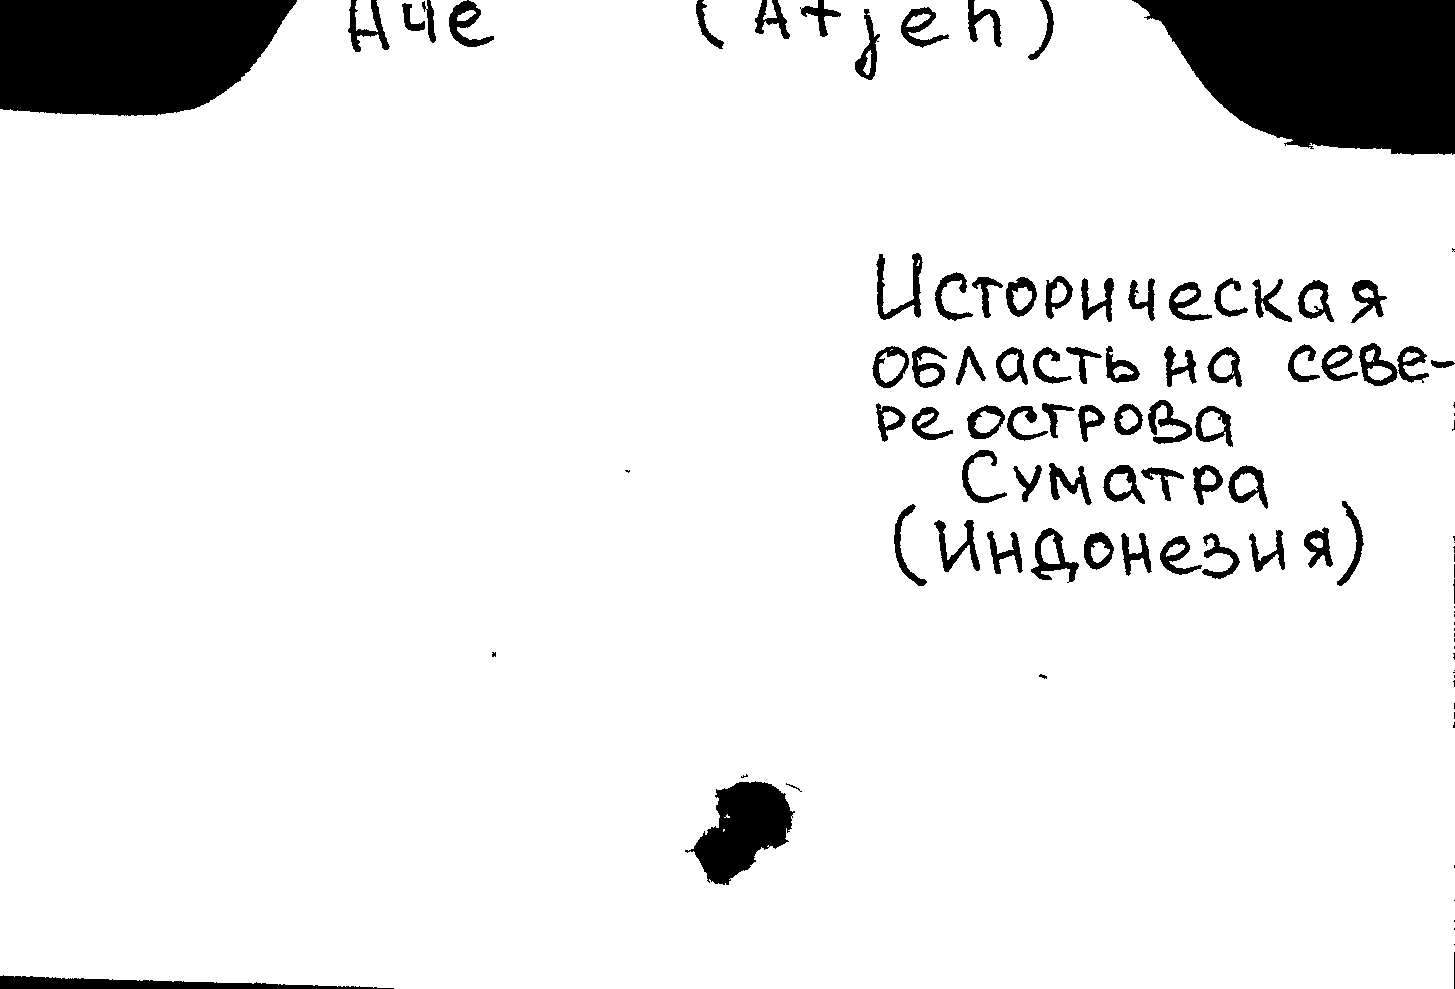 Аче (Atjeh)
Историческая
область на севе-
ре острова
Суматра
(Индонезия)